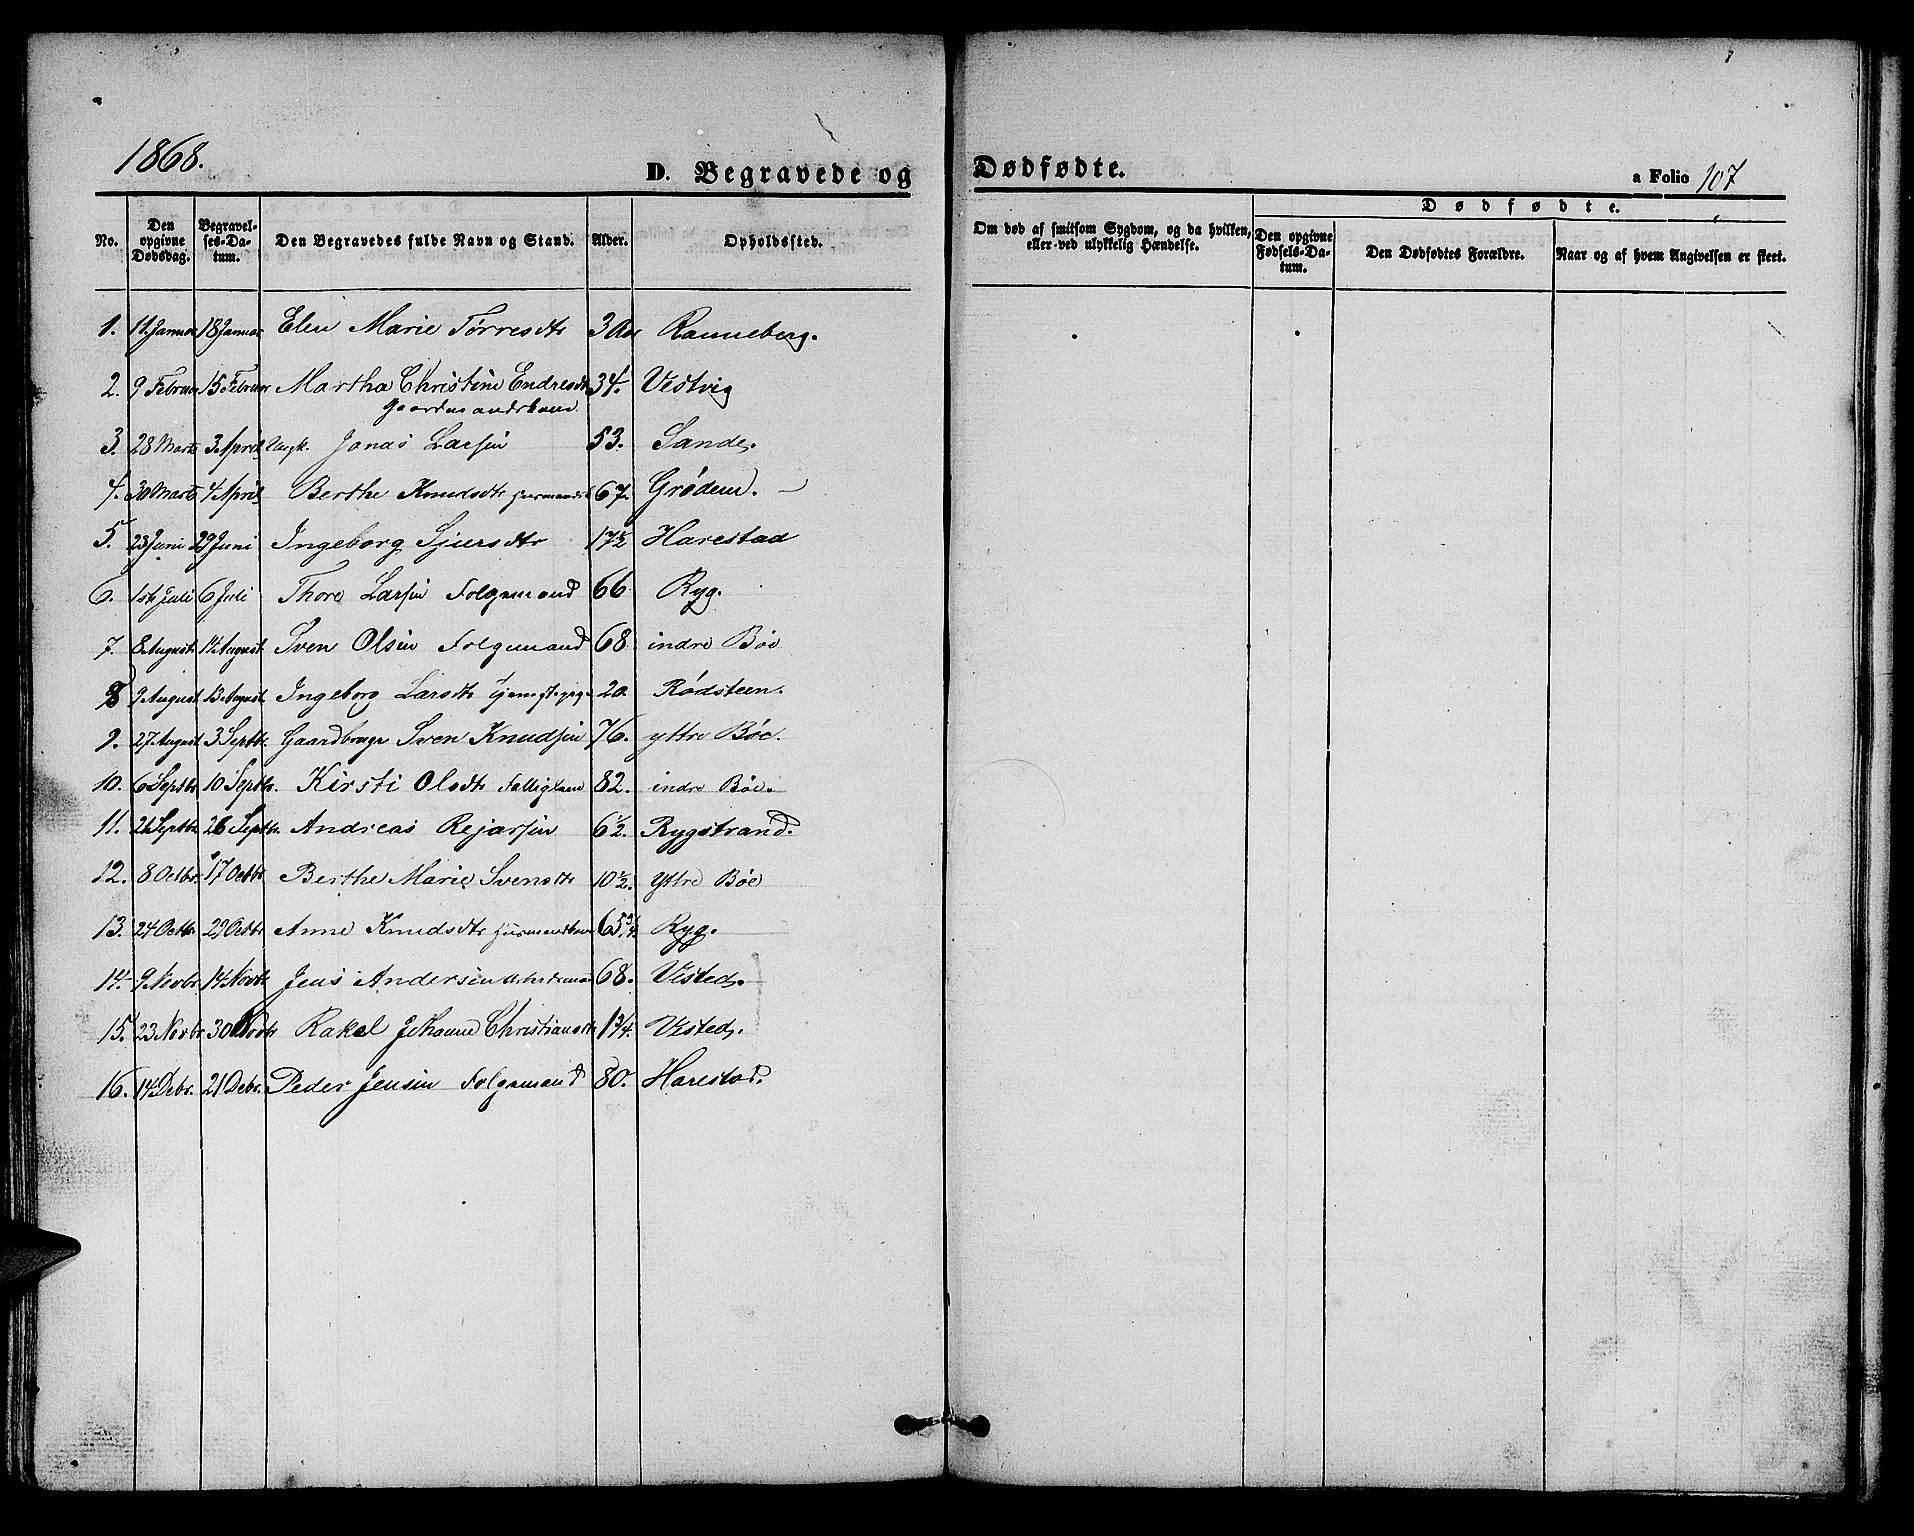 1868.
D. Begravede og Dødfødte.
a Folio 107
No.
Den opgivne Dødsdag.
Begravelses-Datum.
Den Begravedes fulde Navn og Stand.
Alder.
Opholdssted.
Om død af smitsom Sygdom, og da hvilken, eller ved ulykkelig Hændelse.
Dødfødte.
Den opgivne Fødsels-Datum.
Den Dødfødtes Forældre.
Naar og af hvem Angivelsen er skeet.
1. 11 Januar 18 Januar Elen Marie Tørresdtr 3 Aar Ranneberg.
2. 9 Februar 15 Februar Martha Christine Endresdtr 34. Vestvig
Gaardmandskone
3. 28 Marts 3 April Jonas Larsen 53. Sande.
4. 30 Marts 4 April Berthe Knudsdtr 67. Grødem.
5. 23 Juni 29 Juni Ingeborg Sjursdtr 17½ Harestad
6. 1ste Juli 6 Juli Thore Larsen Folgemand 66 Ryg.
7. 8 August 14 August Sven Olsen Folgemand 68. indre Bøe
8 9 August 13 August Ingeborg Larsdtr 20. Rødsteen.
9. 27 August 3 Septbr. Gaardbruger Sven Knudsen 76. yttre Bøe.
10. 6 Septbr 10 Septbr. Kirsti Olsdtr 82. indre Bøe.
11. 21 Septbr 26 Septbr Andreas Rejarsen 6½. Rygstrand.
12. 8 Octbr. 17 Octbr Berthe Marie Svensdtr 10½. Yttre Bøe
13. 24 Octbr. 29 Octbr Anne Knudsdtr Huusmandskone 65¾. Ryg.
14. 9 Novbr. 14 Novbr Jens Andersen Arbeidsmand 68. Visted.
15. 23 Novbr. 30 Novbr Rakel Johanne Christiansdtr 1¾. Visted.
16. 14 Debr. 21 Debr. Peder Jensen Folgemand 80. Harestad.